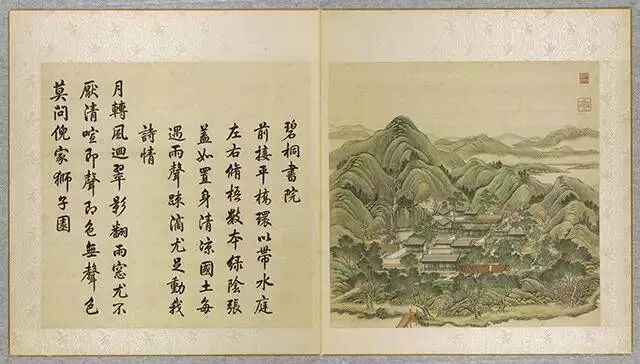 碧桐書院
前接平橋環以帶水庭
左右脩梧數本綠陰張
蓋如置身清凉國土每
遇雨聲疎滴尤足動我
詩情
月轉風迴翠影翻雨窓尤不
厭清喧即聲即色無聲色
莫問倪家獅子園